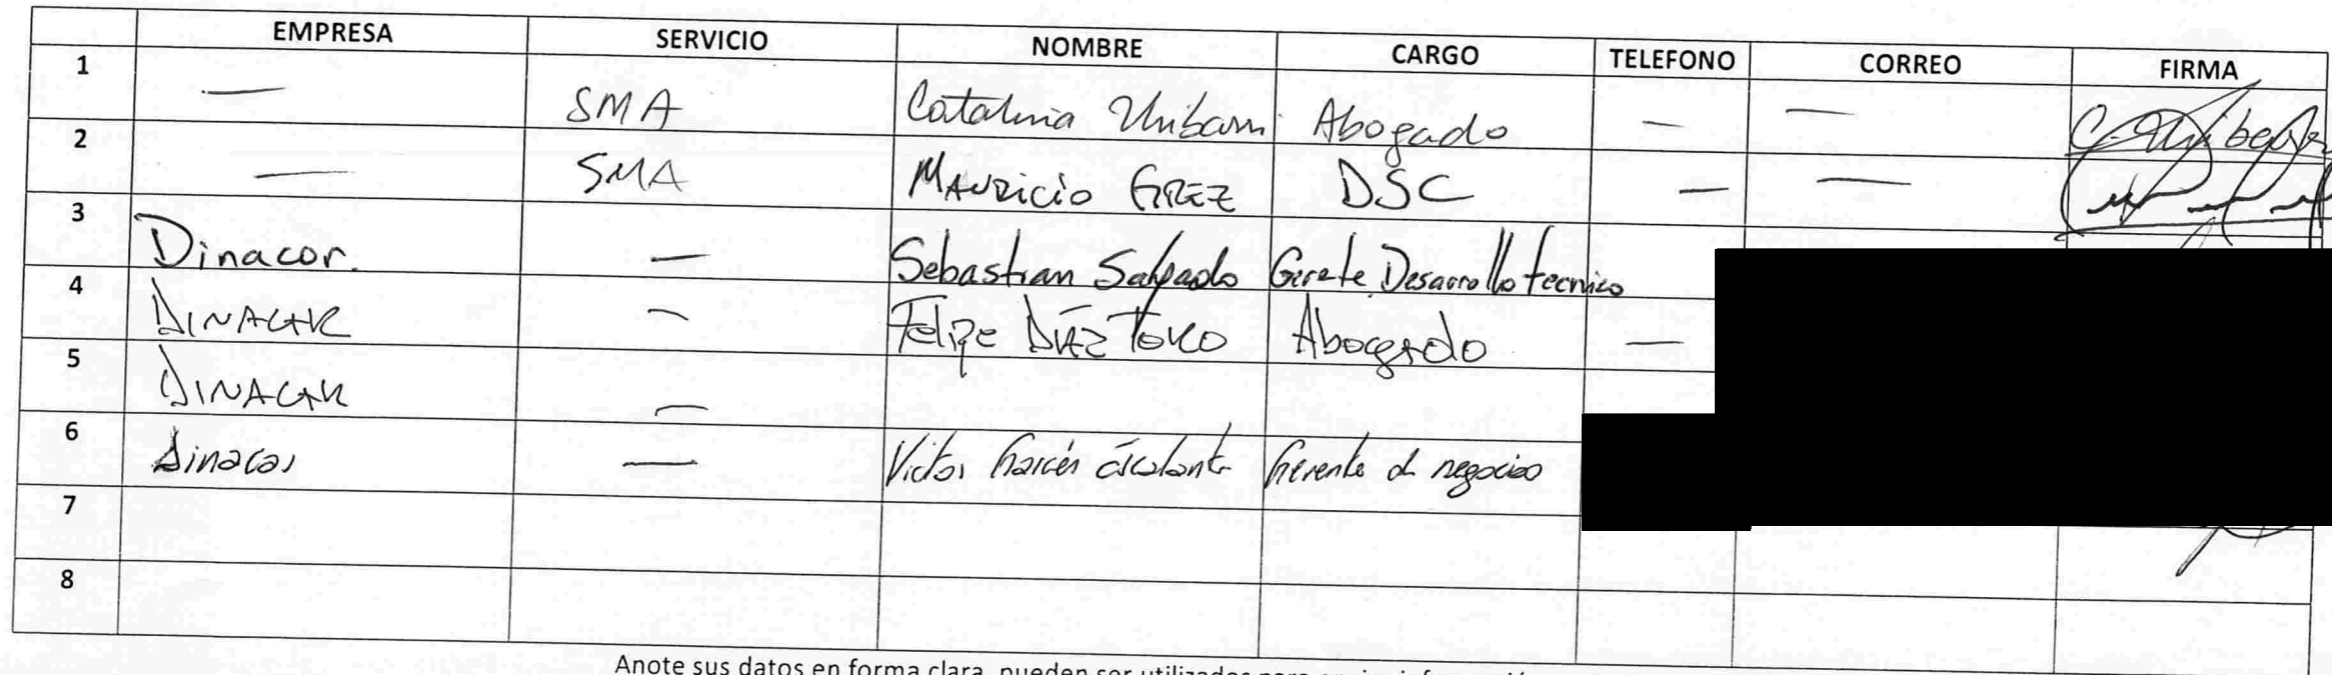 EMPRESA SERVICIO NOMBRE CARGO TELEFONO CORREO FIRMA
1 — SMA Catalina Uribarri Abogado — —
2 — SMA MAURICIO GREZ DSC — —
3 Dinacor. — Sebastian Salgado Gerete Desarrollo tecnico
4 DINACOR — Felipe DÍAZ TORO Abogado —
5 DINACOR —
6 Dinacor — Victor Garcés Escalante Gerente d negocios
7
8
Anote sus datos en forma clara, pueden ser utilizados para